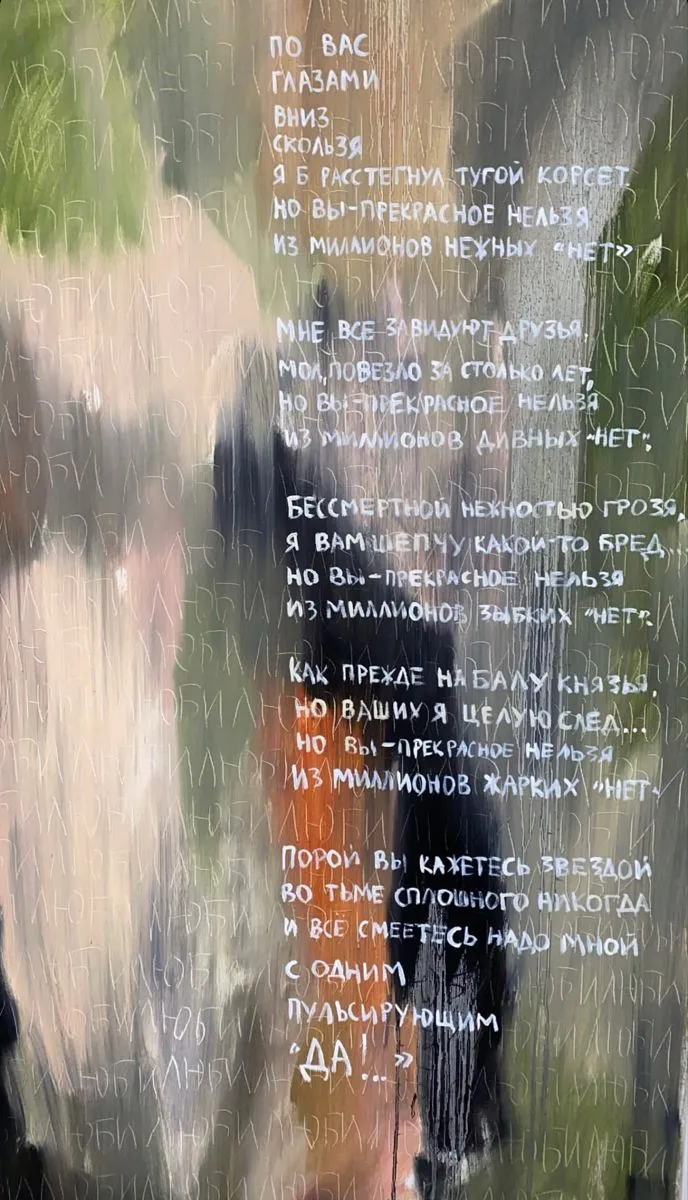 ПО ВАС
ГЛАЗАМИ
ВНИЗ
СКОЛЬЗЯ
Я Б РАССТЕГНУЛ ТУГОЙ КОРСЕТ.
НО ВЫ-ПРЕКРАСНОЕ НЕЛЬЗЯ
ИЗ МИЛЛИОНОВ НЕЖНЫХ "НЕТ"
МНЕ ВСЕ ЗАВИДУЮТ ДРУЗЬЯ,
МОЛ, ПОВЕЗЛО ЗА СТОЛЬКО ЛЕТ,
НО ВЫ-ПРЕКРАСНОЕ НЕЛЬЗЯ
ИЗ МИЛЛИОНОВ ДИВНЫХ "НЕТ".
БЕССМЕРТНОЙ НЕЖНОСТЬЮ ГРОЗЯ,
Я ВАМ ШЕПЧУ КАКОЙ-ТО БРЕД...
НО ВЫ-ПРЕКРАСНОЕ НЕЛЬЗЯ
ИЗ МИЛЛИОНОВ ЗЫБКИХ "НЕТ".
КАК ПРЕЖДЕ НА БАЛУ КНЯЗЬЯ,
НО ВАШИХ Я ЦЕЛУЮ СЛЕД...
НО ВЫ-ПРЕКРАСНОЕ НЕЛЬЗЯ
ИЗ МИЛЛИОНОВ ЖАРКИХ "НЕТ"
ПОРОЙ ВЫ КАЖЕТЕСЬ ЗВЕЗДОЙ
ВО ТЬМЕ СПЛОШНОГО НИКОГДА
И ВСЁ СМЕЕТЕСЬ НАДО МНОЙ
С ОДНИМ
ПУЛЬСИРУЮЩИМ
"ДА!..»